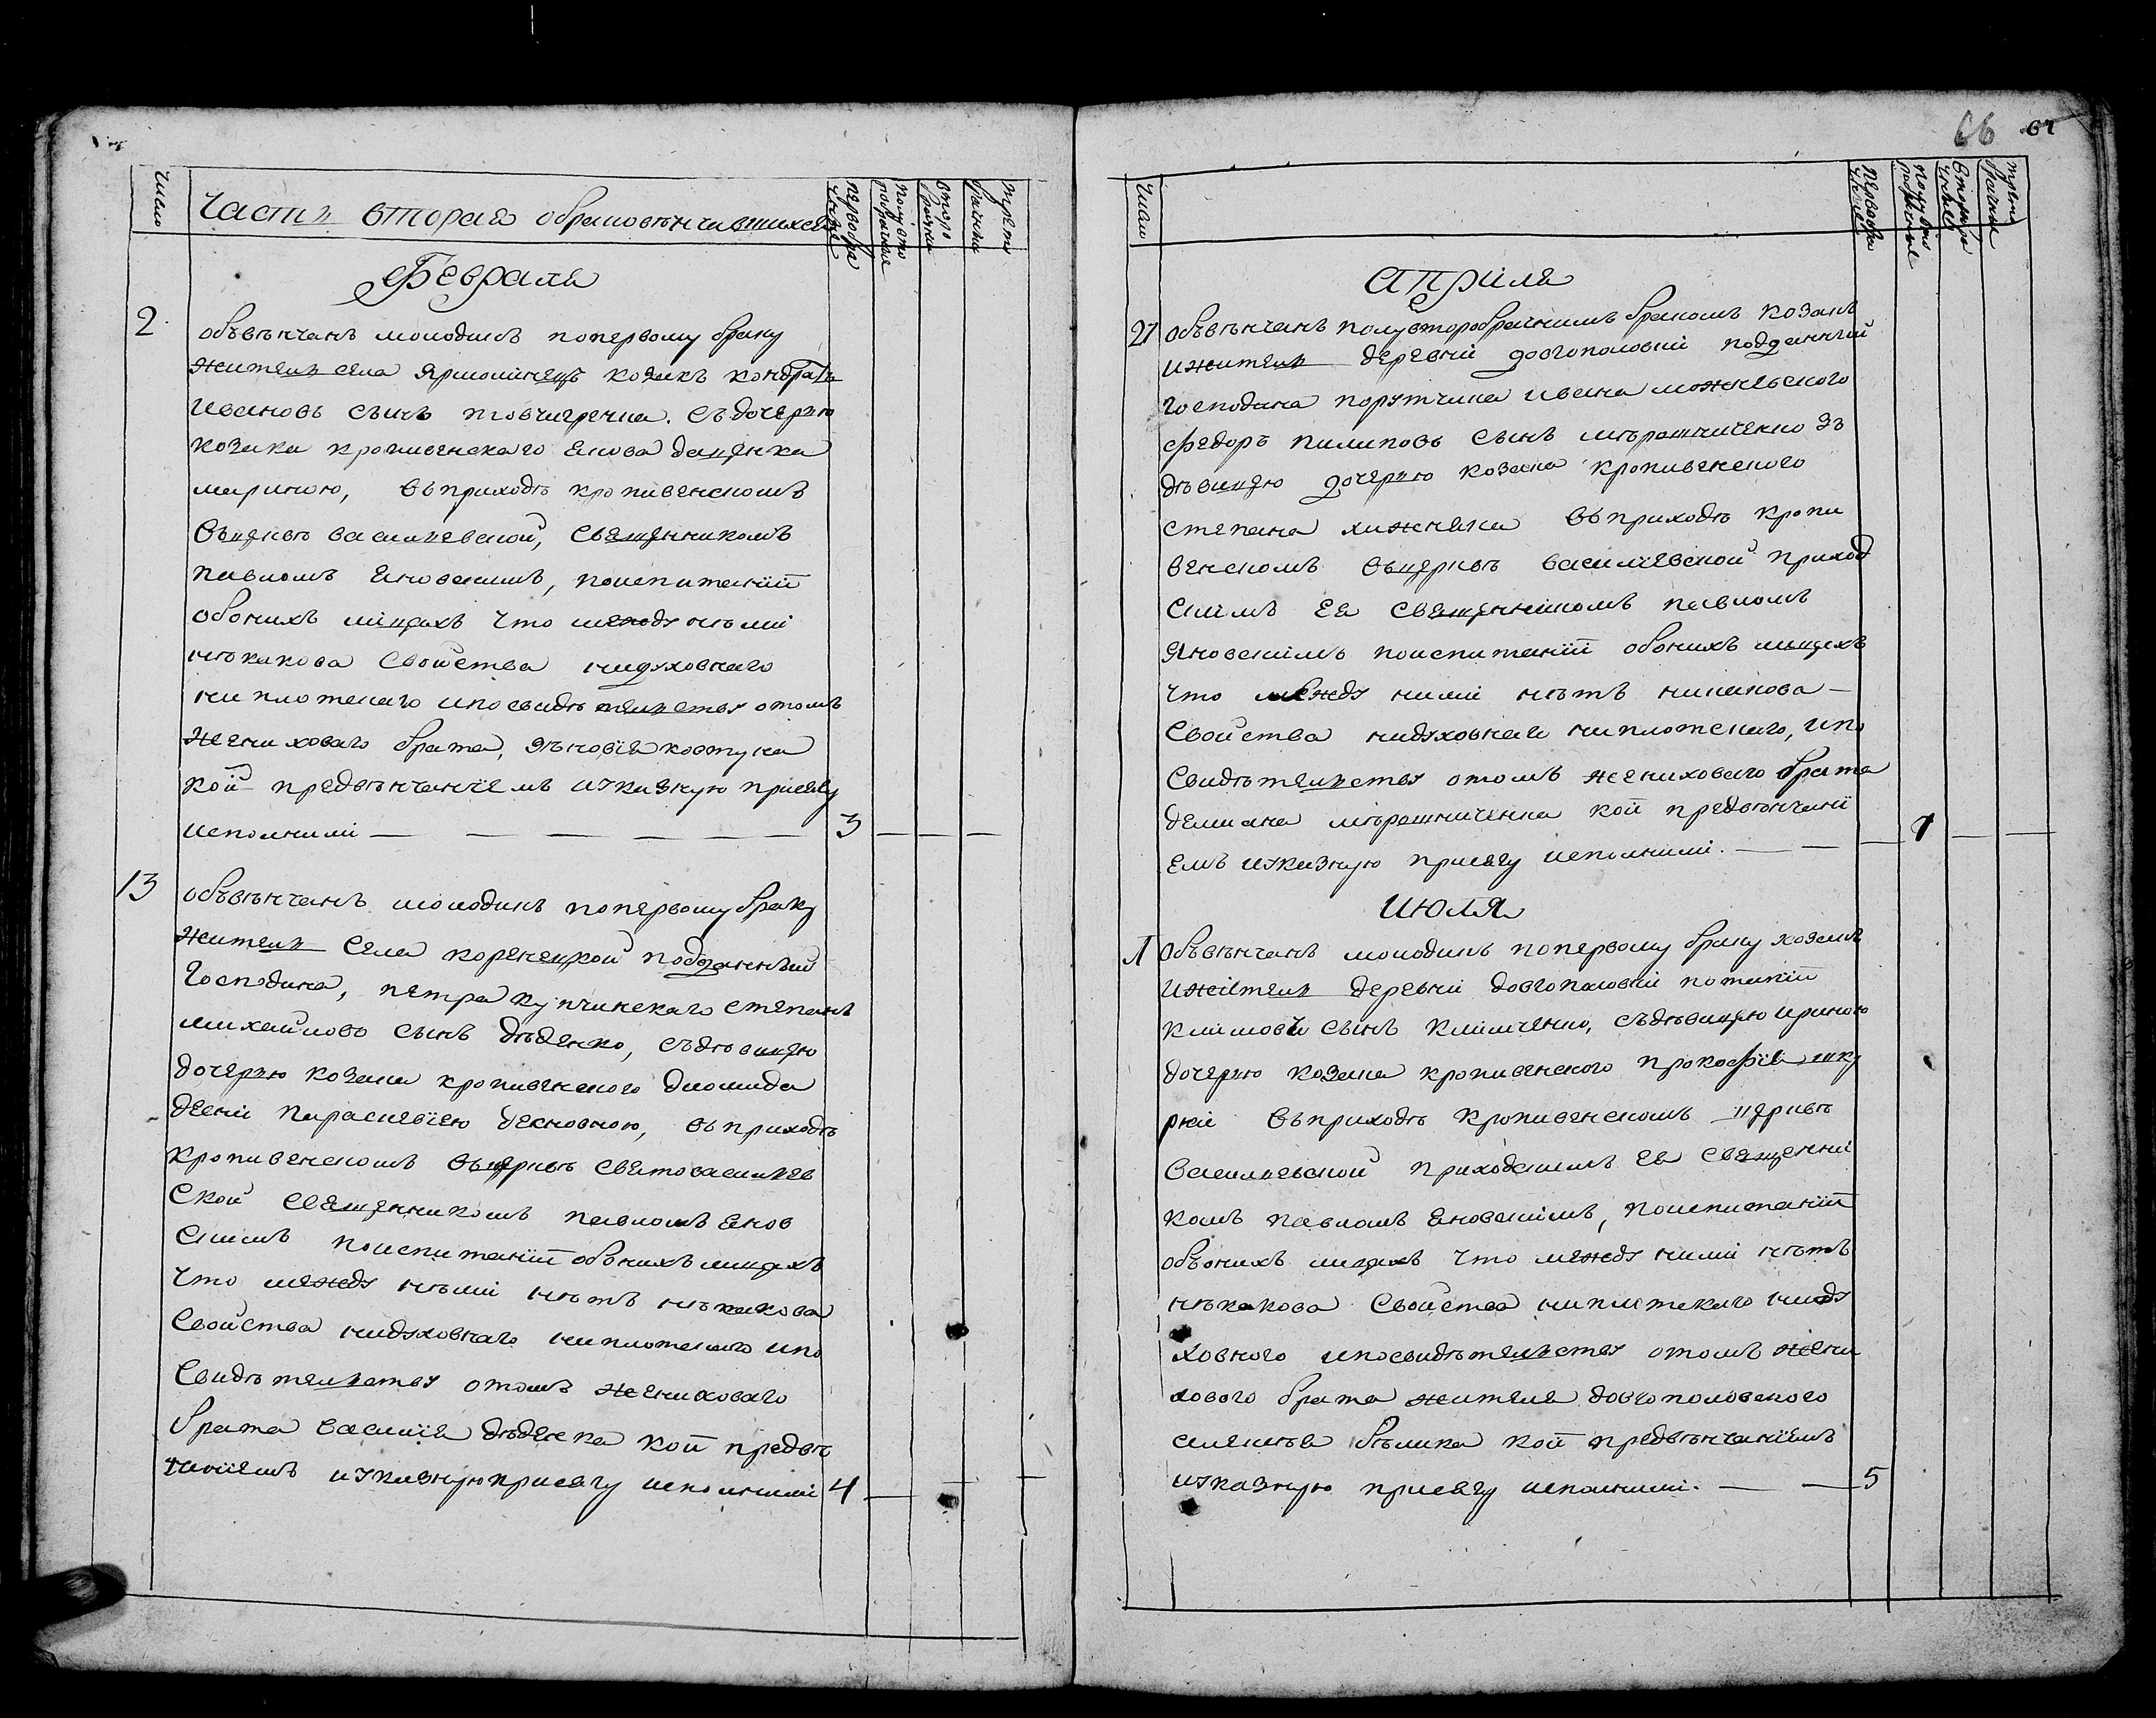 Число
Части вторая обраковѣнчавшихся
первобрачные
полувторобрачные
второбрачни
третобрачни
Февраля
2
объвѣнчанъ молодикъ попервому браку
жителъ села Ярмолинецъ козакъ кондратъ
Ивановъ сынъ товчигречка. съдочерю
козака кропивенскаго Якова даценка
мариною, въприходѣ кропивенскомъ
въцерквѣ василиевской, священникомъ
павломъ Яновскимъ, поиспитанїи
обоихъ лицахъ что между нѣмі
нѣкакова свойства нидуховнаго
ниплотскаго ипосвидѣтелству отомъ
женихова брата, зѣновїя ковтуна
кой предвѣнчанїемъ указную присягу
исполнилі
3
13
объвѣнчанъ молодикъ попервому браку
жителъ села коренецкой подданный
Господина, петра купчинскаго степанъ
михайловъ сынъ дѣденко, съдѣвицею
дочерю козака кропивенского диомида
деснй параскевїею, въприходѣ
кропивенскомъ въцерквѣ святовасилиев
ской священникомъ павломъ янов
скимъ поиспитанїи обоихъ лицахъ
что между нѣмі нѣтъ нѣкакова
свойства нидуховнаго ниплотского ипо
свидѣтелству отомъ жениховаго
брата василїя дѣденка кой предвѣ
нчнїемъ указнуюприсягу исполнилі
4
66 67
Число
первобрачные
полувторобрачные
второбрачные
третобрачные
Апрїля
27
объвѣнчанъ полуторобрачнимъ бракомъ козакъ
ижителъ деревнї довгополовкї подданный
господина порутчика ивана можневского
Федоръ пилиповъ сынъ мѣрошниченко зъ
дѣвицею дочерю козака кропивенского
степана хижняка въприходѣ кропи
венскомъ въцерквѣ василїевской приход
скимъ ея священнїкомъ павломъ
Яновскимъ поиспитанїи обоихъ лицехъ
что между нимі нѣтъ никакова
свойства нидуховнаго ниплотского, ипо
свидѣтелству отомъ жениховаго брата
демяна мѣрошниченка кой предвѣнчанї
емъ указную присягу исполнилі.
1
Июля
1
объвѣнчанъ молодикъ попервому браку козакъ
ижителъ деревнї довгополовкї потапїй
климовъ сынъ климченко, съдѣвицею ириною
дочерю козака кропивенского прокофїя шку
ркї въприходѣ кропивенскомъ церквѣ
василиевской приходскимъ ея священнї
комъ павломъ яновскимъ, поиспитанїи
обоихъ лицехъ что между нимі нѣтъ
нѣкакова свойства ниплотскаго ниду
ховного ипосвидѣтелству отомъ жени
хового брата жителя довгополовского
алексѣя бѣлика кой предвѣнчанїемъ
указную присягу исполнилі.
5